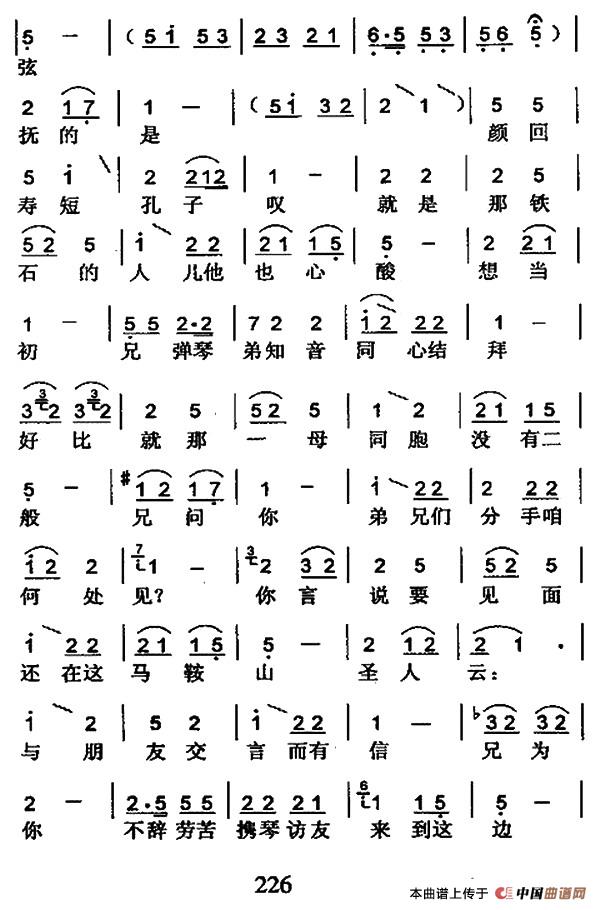 5 — ( 5 i 5 3 | 2 3 2 1 | 6·5 5 3 | 5 6 5 )
弦
2 1 7 | 1 — | ( 5 i 3 2 | 2 1 ) | 5 5
抚的 是 颜回
5 i | 2 2 1 2 | 1 — | 2 2 | 2 5
寿短 孔子 叹 就是 那铁
5 2 5 | i 2 2 | 2 1 1 5 | 5 — | 2 2 1
石的 人儿他 也心 酸 想当
1 — | 5 5 2·2 | 7 2 2 | i 2 2 2 | 1 —
初 兄弹琴 弟知音 同心结 拜
3 3 2 3 3 2 | 2 5 | 5 2 5 | 1 2 | 2 1 1 5
好比 就那 一母 同胞 没有二
5 — | #1 2 1 7 | 1 — | i 2 2 | 2 2 2
般 兄问 你 弟兄们 分手咱
i 2 2 | 7 i 1 — | 3 2 3 2 | 2 5 | 5 2 5
何处 见? 你言 说要 见面
i 2 2 | 2 1 1 5 | 5 — | 2 1 2 | 2 1 ·
还在这 马鞍 山 圣人 云:
i 2 | 5 2 | i 2 2 | 1 — | b3 2 3 2
与朋 友交 言而有 信 兄为
2 — | 2·5 5 5 | 2 2 2 1 | 6 i 1 1 5 | 5 —
你 不辞劳苦 携琴访友 来到这 边
226
本曲谱上传于 中国曲谱网